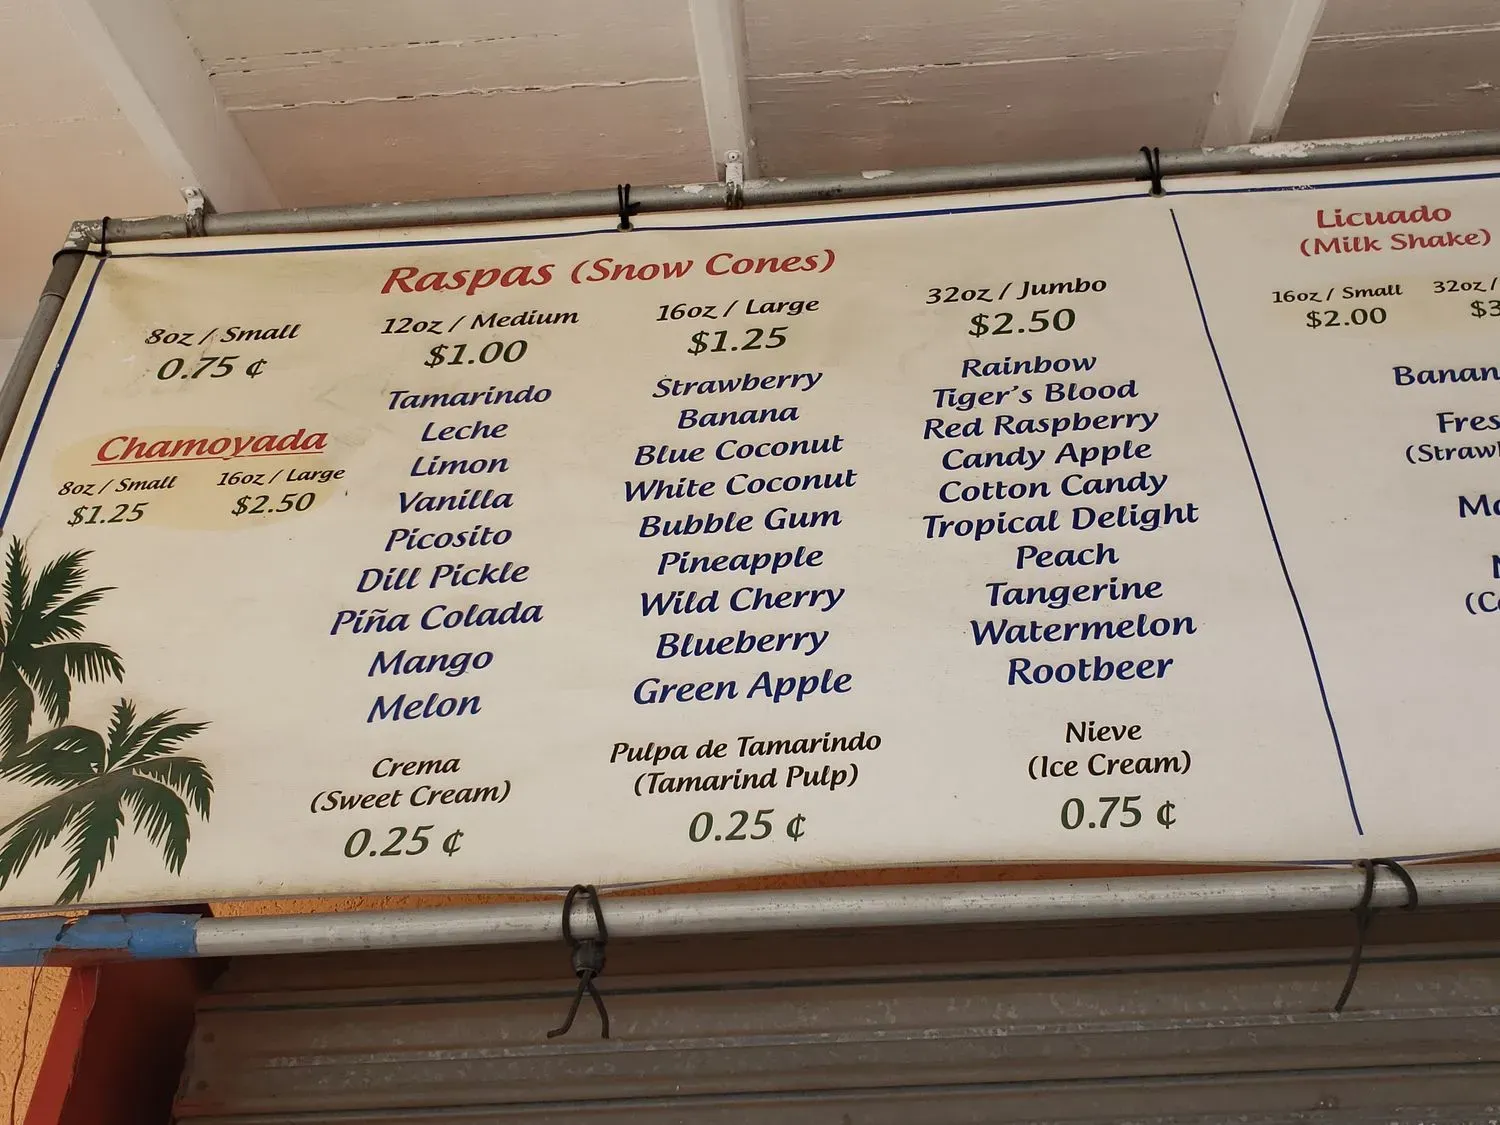 Raspas (Snow Cones)
8oz / Small
0.75 ¢
12oz / Medium
$1.00
16oz / Large
$1.25
32oz / Jumbo
$2.50
Chamoyada
8oz / Small
$1.25
16oz / Large
$2.50
Tamarindo
Leche
Limon
Vanilla
Picosito
Dill Pickle
Piña Colada
Mango
Melon
Strawberry
Banana
Blue Coconut
White Coconut
Bubble Gum
Pineapple
Wild Cherry
Blueberry
Green Apple
Rainbow
Tiger's Blood
Red Raspberry
Candy Apple
Cotton Candy
Tropical Delight
Peach
Tangerine
Watermelon
Rootbeer
Crema
(Sweet Cream)
0.25 ¢
Pulpa de Tamarindo
(Tamarind Pulp)
0.25 ¢
Nieve
(Ice Cream)
0.75 ¢
Licuado
(Milk Shake)
16oz / Small
$2.00
32oz /